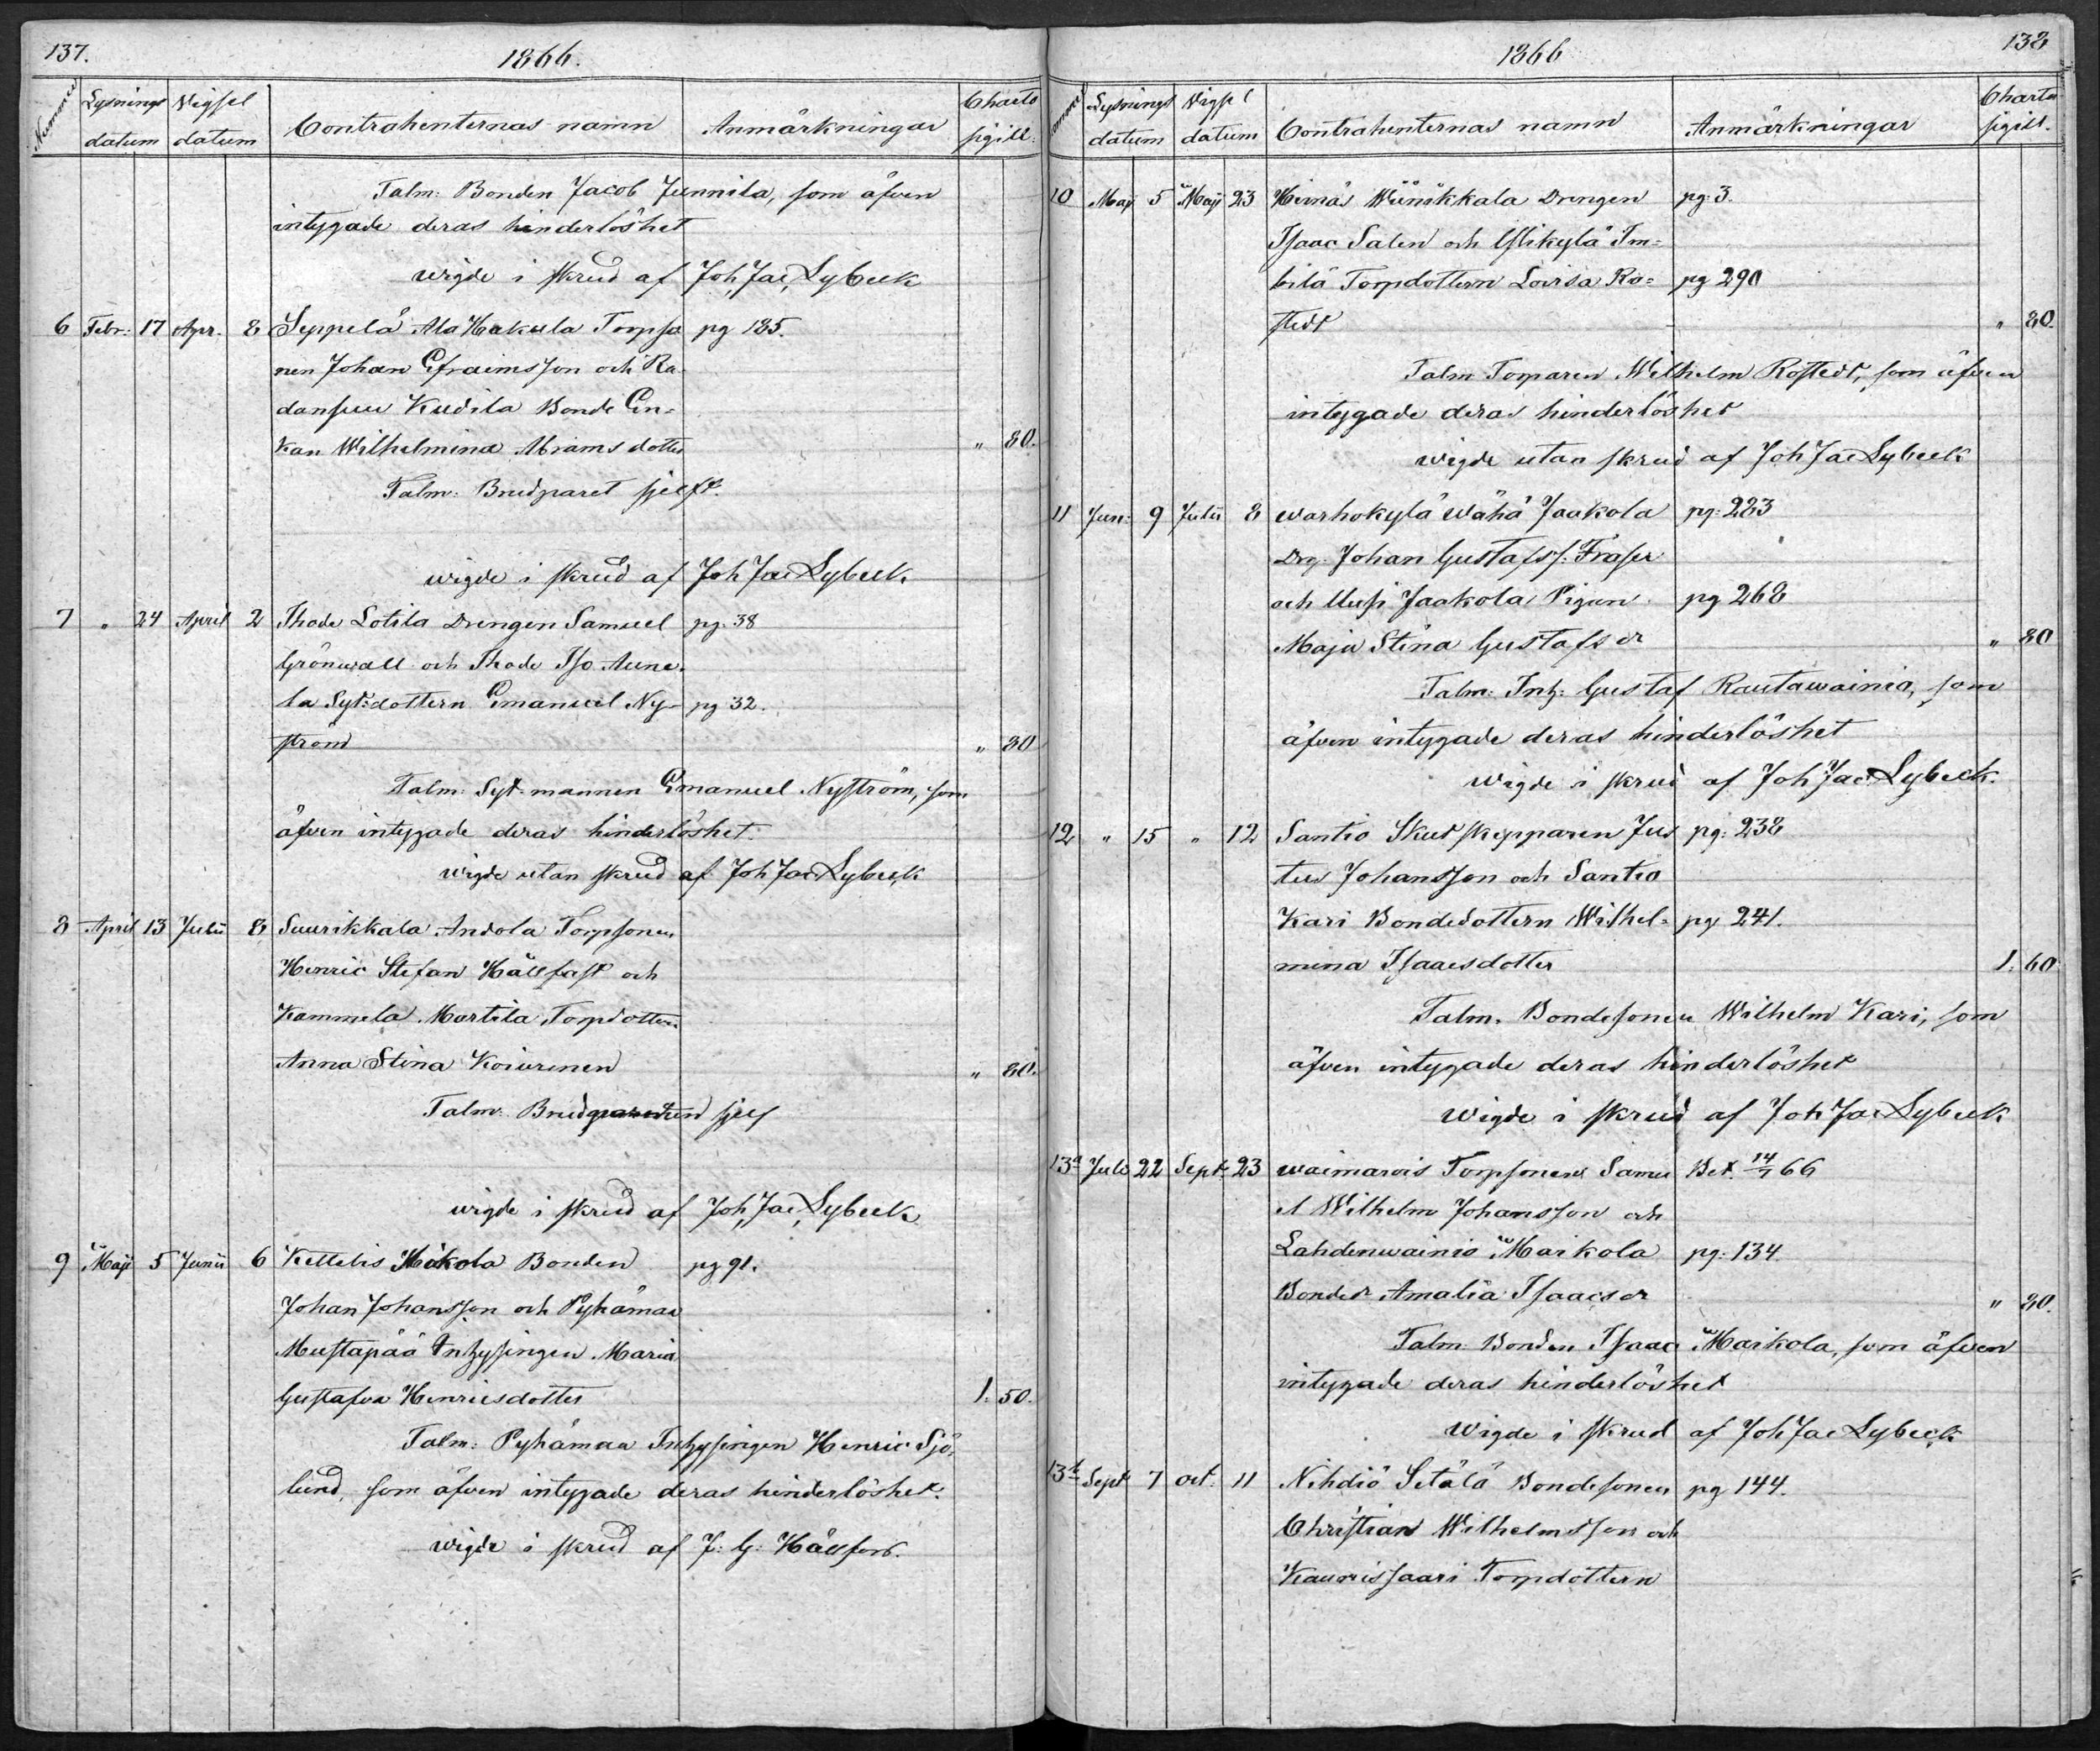 137.
1866.
Nummer Lysnings datum Vigsel datum Contrahenternas namn Anmärkningar Charta sigill.
Talm: Bonden Jacob Junnila, som äfven
intygade deras hinderlöshet
wigde i skrud af Joh, Jac, Lybeck
6 Febr: 17 Apr. 8 Seppelä Ala Hakula Torpso pg 185.
nen Johan Efraimsson och Ra
dansuu Kudila Bonde En=
kan Wilhelmina Abrams dotter " 80.
Talm: Brudparet sjelft.
wigde i skrud af Joh Jac Lybeck
7 " 24 April 2 Ihode Lotila Drengen Samuel pg. 38
Grönwall och Ihode Iso Aune=
la Syt:dottern Emanuel Ny- pg 32.
ström " 80
Talm: Syt-mannen Emanuel Nyström, som
äfven intygade deras hinderlöshet.
wigde utan skrud af Joh Jac Lybeck
8 April 13 Julii 8 Suurikkala Andola Torpsonen
Henric Stefan Hällfast och
Kammela Martila Torpdottern
Anna Stina Koivunen " 80.
Talm: sjelf
wigde i skrud af Joh, Jac, Lybeck
9 Maji 5 Junii 6 Kettelis Mikola Bonden pg 91.
Johan Johansson och Pyhämaa
Mustapää Inhysingen Maria
Gustafva Henricsdotter 1. 50.
Talm: Pyhämaa Inhysingen Henric Sjö=
lund, som äfven intygade deras hinderlöshet.
wigde i skrud af J: G: Hällfors.
1866
138
Nummer Lysnings datum Vigsel datum Contrahenternas namn Anmärkningar Charta sigill.
10 Maji 5 Maji 23 Hernäs Wiinikkala Drengen pg: 3.
Isaac Salen och Ylikylä Im=
bilä Torpdottern Lovisa Ro= pg 290
stedt " 80.
Talm Torparen Wilhelm Rostedt, som äfven
intygade deras hinderlöshet
wigde utan skrud af Joh Jac Lybeck
11 Jun: 9 Julii 8 warhokylä wähä Jaakola pg: 283
Drg. Johan Gustafss: Fraser
och Uusi Jaakola Pigan pg 268
Maja Stina Gustafs dr " 80
Talm: Inh: Gustaf Rautawainio, som
äfven intygade deras hinderlöshet
wigde i skrud af Joh Jac Lybeck.
12 " 15 " 12 Santio Skutskepparen Jus pg: 238
tus Johansson och Santio
Kari Bondedottern Wilhel= pg 241.
mina Isaacsdotter 1. 60
Talm. Bondesonen Wilhelm Kari, som
äfven intygade deras hinderlöshet
wigde i skrud af Joh Jac Lybeck
13a Julii 22 Sept: 23 waimarois Torpsonen Samu Bet. 14/7 66
el Wilhelm Johansson och
Lahdenwainio Maikola pg: 134.
Bondedr Amalia Isaacs dr " 80.
Talm: Bonden Isaac Maikola, som äfven
intygade deras hinderlöshet
wigde i skrud af Joh Jac Lybeck
13b Sept 7 Oct. 11 Nihdiö Setälä Bondesonen pg 144.
Christian Wilhelmsson och
Kaurissaari Torpdottern